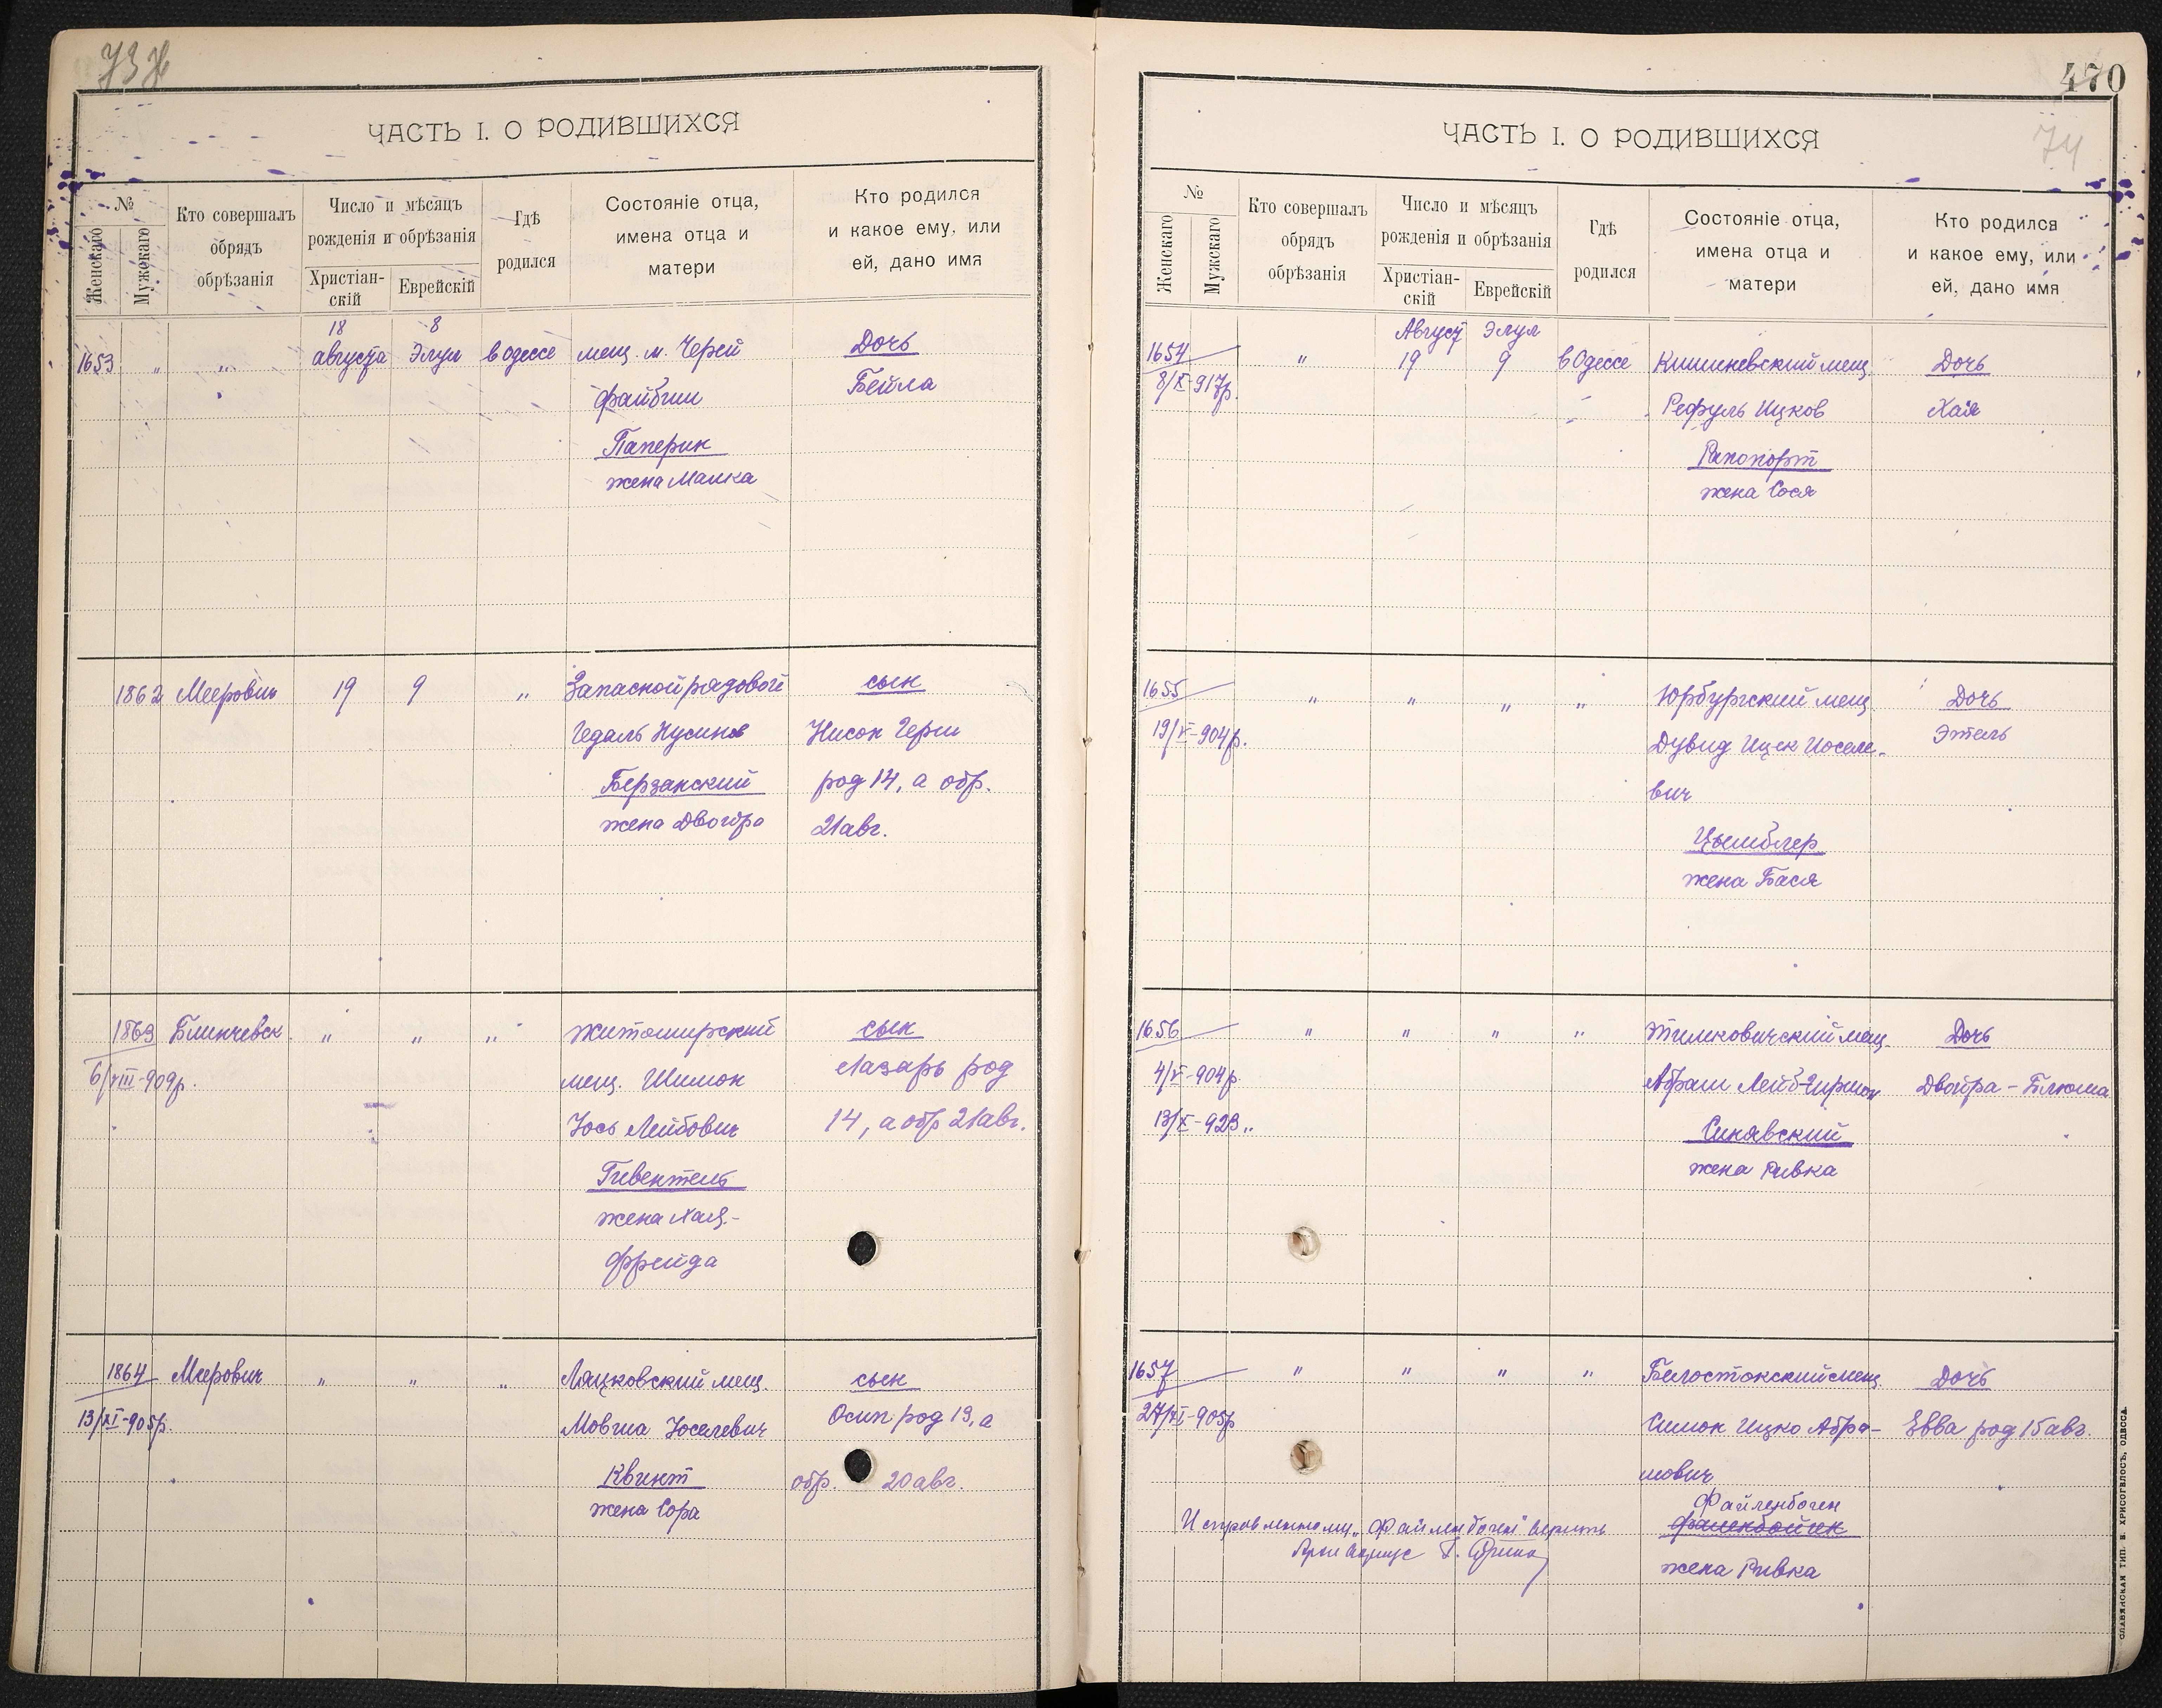 73
ЧАСТЬ I. О РОДИВШИХСЯ
№
Женскаго
Мужскаго
Кто совершалъ
обрядъ
обрѣзанія
Число и мѣсяцъ
рожденія и обрѣзанія
Христіан-
скій
Еврейскій
Гдѣ
родился
Состояніе отца,
имена отца и
матери
Кто родился
и какое ему, или
ей, дано имя
18 8
1653 " " августа Элул в Одессе мещ. м. Черей Дочь
Файбиш Бейла
Паперин
жена Малка
1862 Меерович 19 9 " Запасной рядовой сын
Гедаль Нусинов Нисон Герш
Берзанский род 14, а обр.
жена Двойра 21 авг.
1863 Блинчевск. " " " житомирский сын
6/VIII-909р. мещ. Шимон Лазарь род
Іось Лейбович 14, а обр 21 авг.
Гивентель
жена Хая-
Фрейда
1864 Меерович " " " Ляцковский мещ. сын
13/XI-905р. Мовша Іоселевич Осип род 13, а
Квинт обр. 20 авг.
жена Сора
470
74
ЧАСТЬ I. О РОДИВШИХСЯ
№
Женскаго
Мужскаго
Кто совершалъ
обрядъ
обрѣзанія
Число и мѣсяцъ
рожденія и обрѣзанія
Христіан-
скій
Еврейскій
Гдѣ
родился
Состояніе отца,
имена отца и
матери
Кто родился
и какое ему, или
ей, дано имя
Август Элул
1654 " 19 9 в Одессе Кишиневский мещ. Дочь
8/X-917р. Рефуль Ицков Хая
Рапопорт
жена Сося
1655 " " " " Юрбургский мещ. Дочь
19/V-904р. Дувид Ицек Иоселе- Этель
вич
Цымблер
жена Бася
1656 " " " " мещ. Дочь
4/V-904р. Абрам Лейб-Гершон Двойра-Блюма
13/X-923 " Синявский
жена Ривка
1657 " " " " Белостокский мещ. Дочь
27/VI-905р. Симон Ицко Абра- Евва род 15 авг.
мович
Файленбоген
Исправленному "Файленбоген" верить
жена Ривка
СЛАВЯНСКАЯ ТИП. Н. ХРИСОГЕЛОСЪ, ОДЕССА.